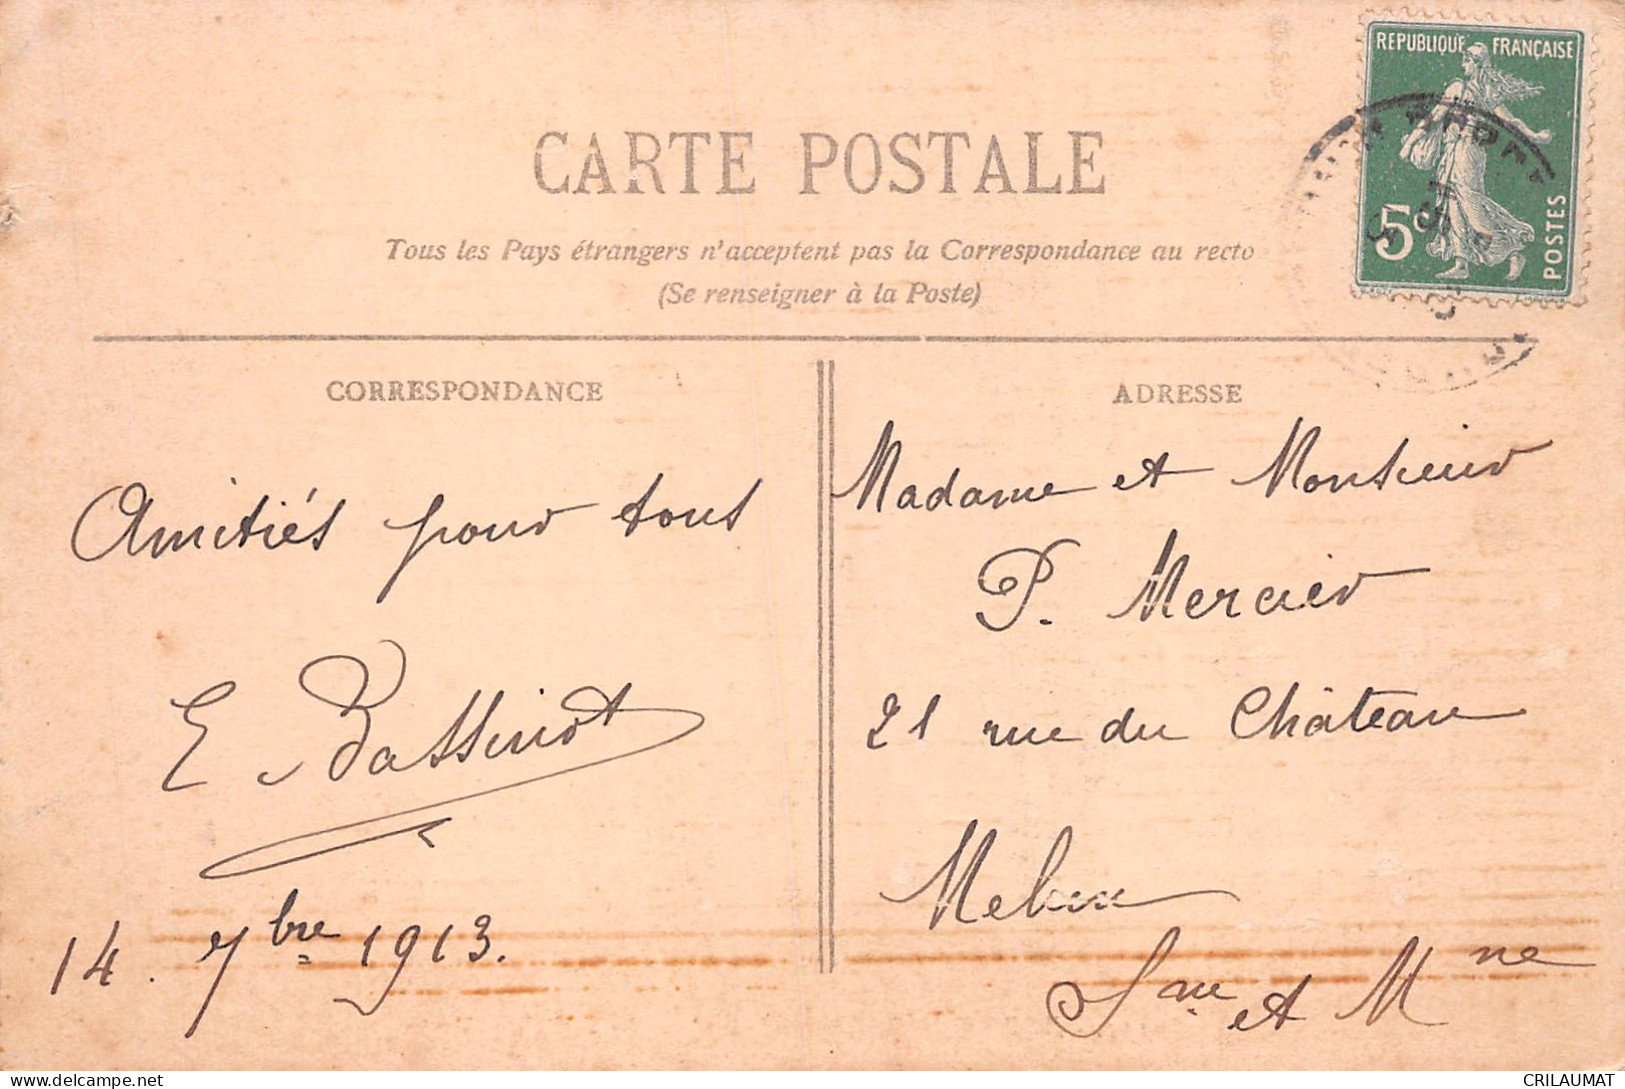 REPUBLIQUE FRANÇAISE
5c
POSTES
CARTE POSTALE
Tous les Pays étrangers n'acceptent pas la Correspondance au recto
(Se renseigner à la Poste)
CORRESPONDANCE
Amitiés pour tous
E Bassinot
14. 7bre 1913.
ADRESSE
Madame et Monsieur
P. Mercier
21 rue du Château
Melun
Sne et Mne
CRILAUMAT